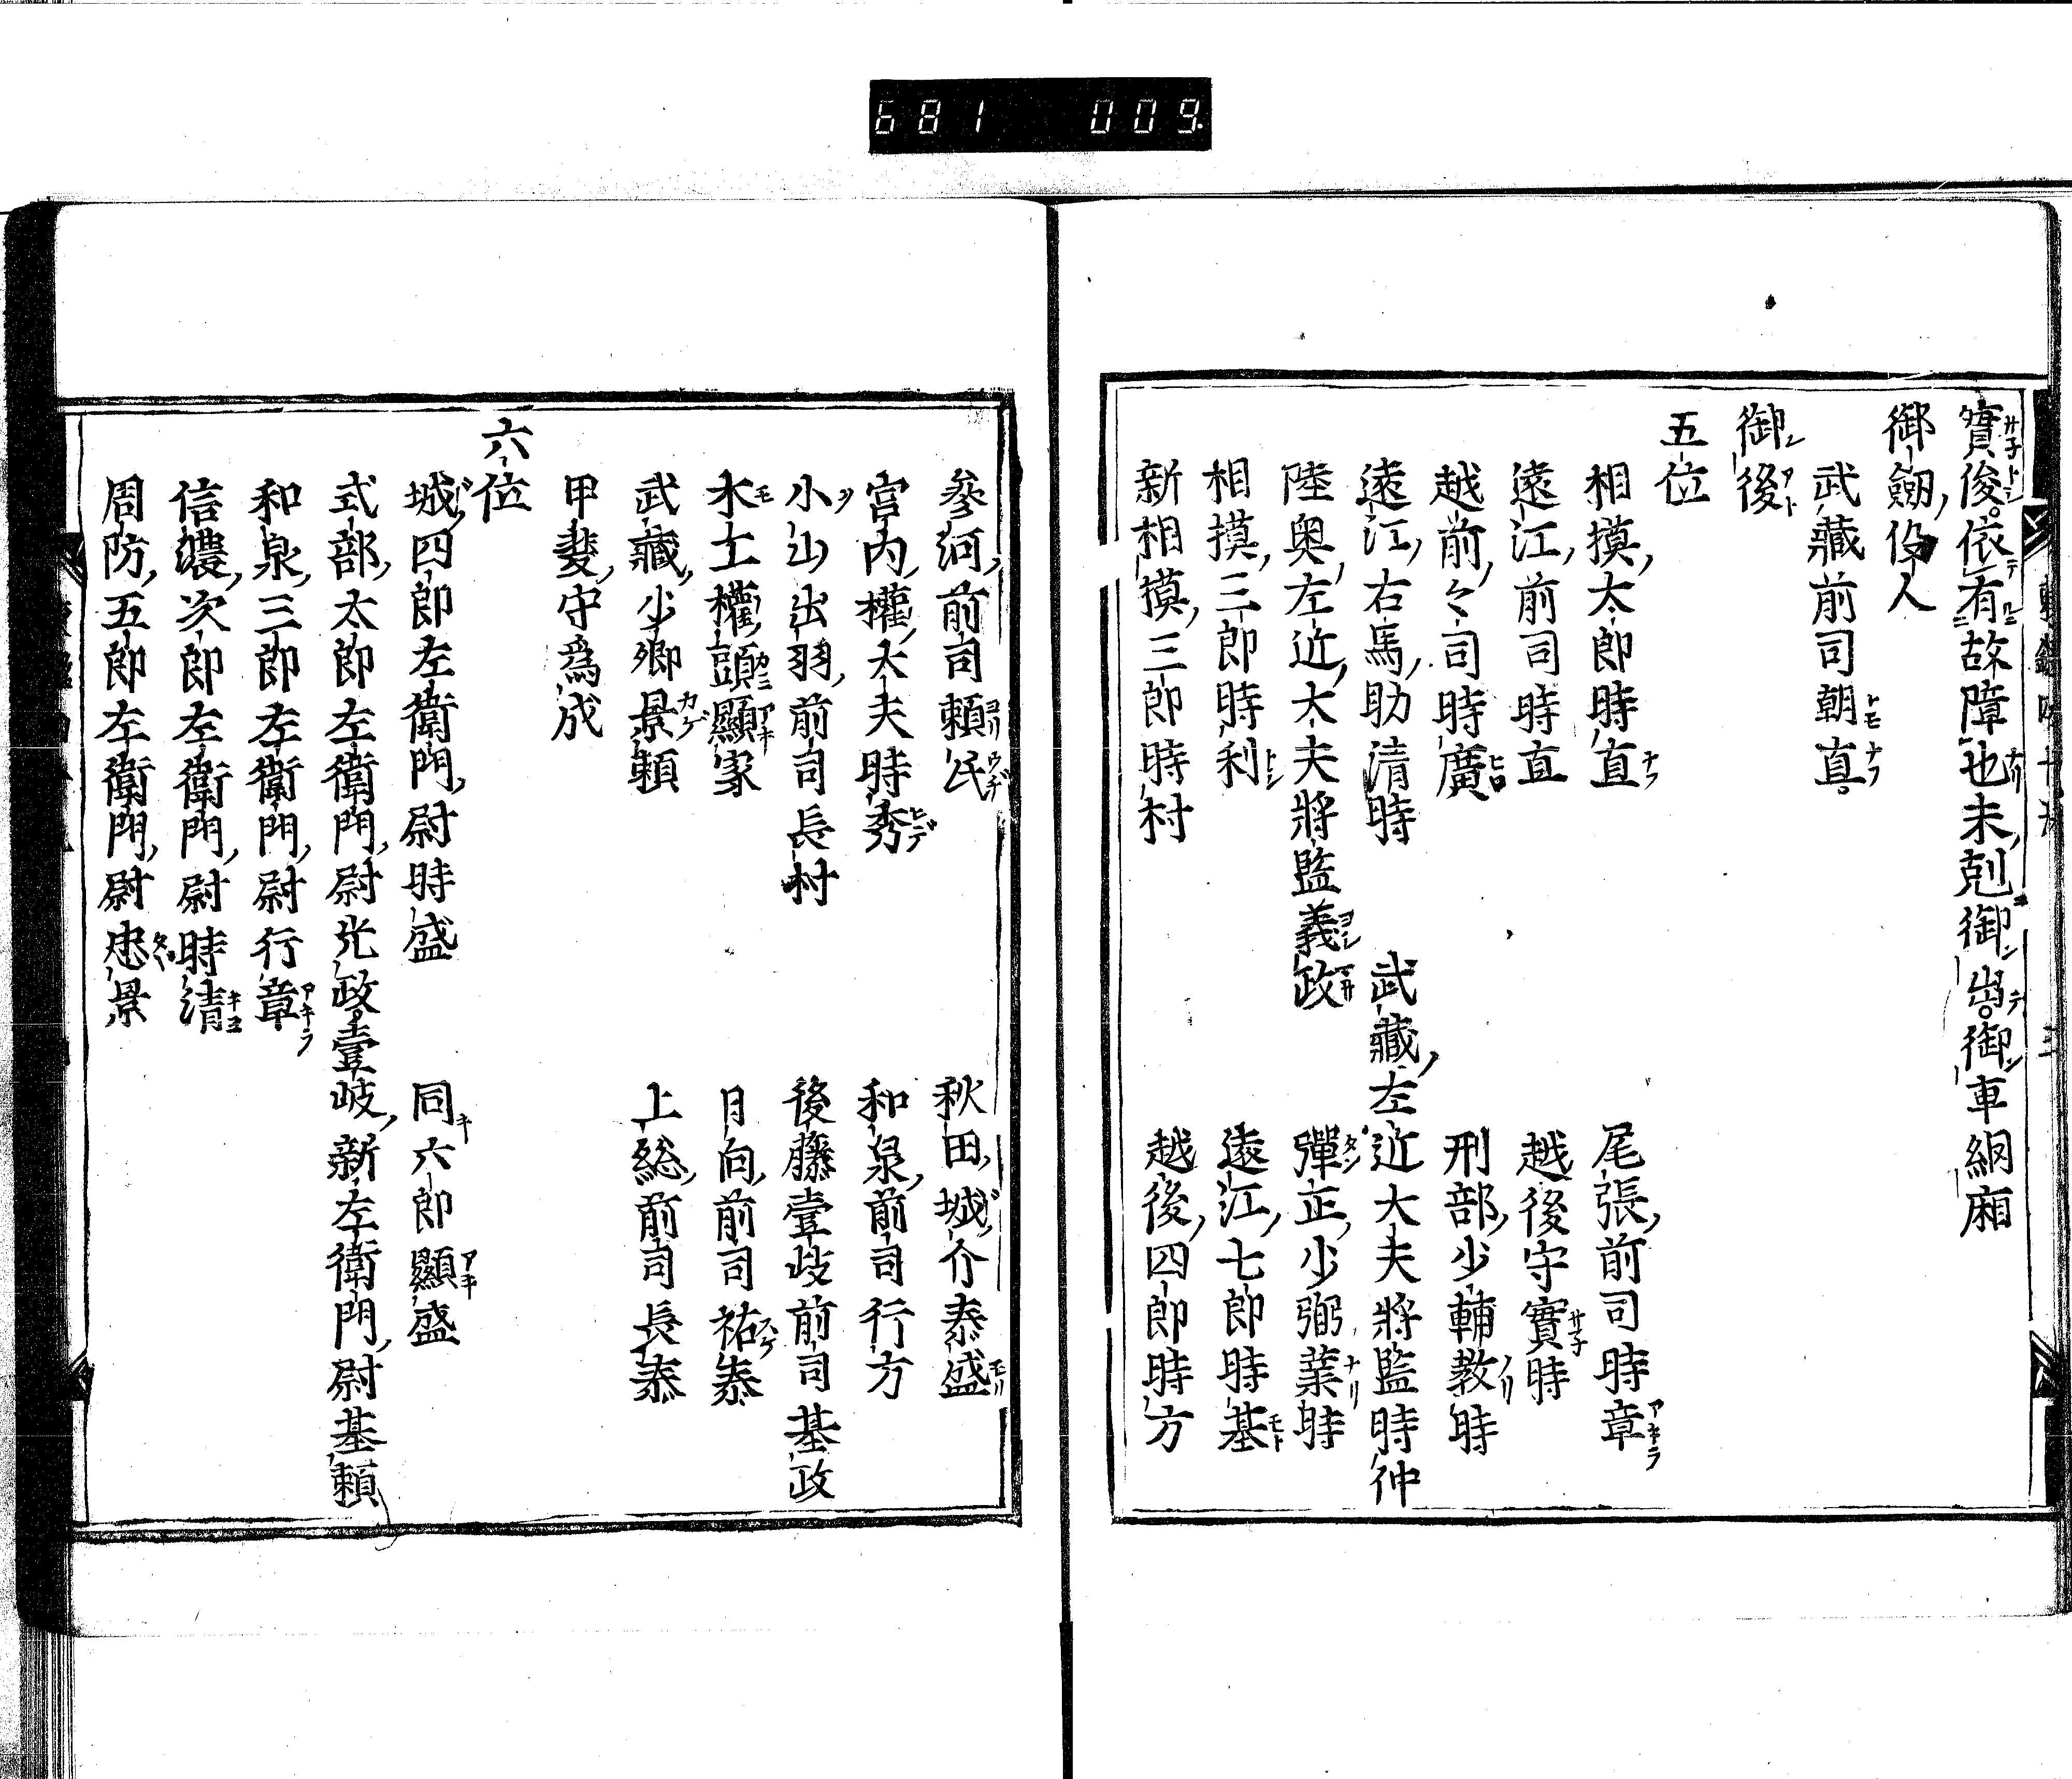 681 009
實俊。依有故障也未剋御出。御車網廂
御劔役人
武藏前司朝直。
御後
五位
相摸太郎時直 尾張前司時章
遠江前司時直 越後守實時
越前々司時廣 刑部少輔教時
遠江右馬助清時 武藏左近大夫將監時仲
陸奥左近大夫將監義政 彈正少弼業時
相摸三郎時利 遠江七郎時基
新相摸三郎時村 越後四郎時方
參河前司頼氏 秋田城介泰盛
宮内權大夫時秀 和泉前司行方
小山出羽前司長村 後藤壹岐前司基政
木工權頭顯家 日向前司祐泰
武藏少卿景頼 上総前司長泰
甲斐守爲成
六位
城四郎左衛門尉時盛 同六郎顯盛
式部太郎左衛門尉光政 壹岐新左衛門尉基頼
和泉三郎左衛門尉行章
信濃次郎左衛門尉時清
周防五郎左衛門尉忠景